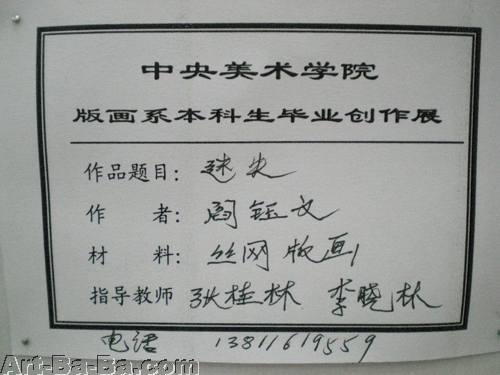 中央美术学院
版画系本科生毕业创作展
作品题目：迷失
作者：阎钰文
材料：丝网版画
指导教师 张桂林 李晓林
电话 13811619559
Art-Ba-Ba.com